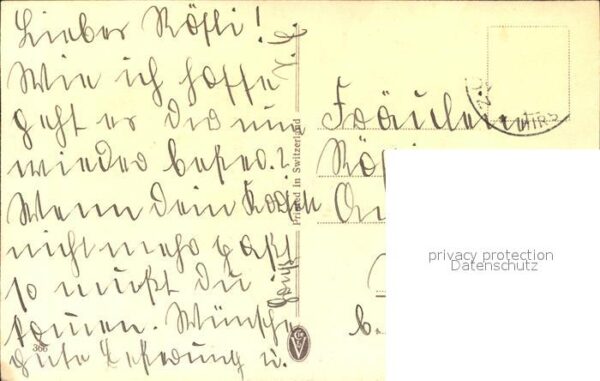 Lieber Rösli!
Wie ich hoffe
geht es dir nun
wieder besser?
Wenn dein
nicht mehr
so mußt du
komen. Wünsche
gute Besserung u.
Gruß
Printed in Switzerland
366
Fräulein
HIRS
privacy protection
Datenschutz
b.